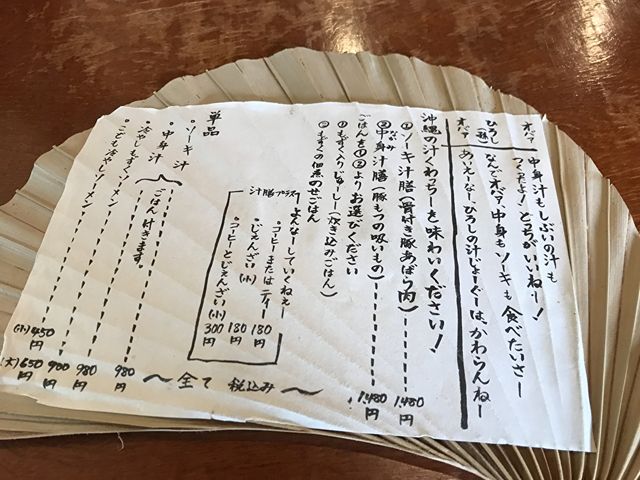 オバア 中身汁もしぶいの汁も
つくったよ！どっちがいいねー！
ひろし なんでオバァ、中身もソーキも食べたいさー
オバア あいえーなー、ひろしの汁じょーぐーは、かわらんねー
沖縄の汁くゎっちーを味わいください！
①ソーキ汁膳(骨付き豚あばら肉) 1,480円
②中身汁膳(豚もつの吸いもの) 1,480円
なかみ
ごはんを①②よりお選びください
①もずく入りじゅーしー(炊き込みごはん)
②もずくの佃煮のせごはん
汁膳プラス
よんなーしていくねぇー
•コーヒーまたはティー 180円
•じぇんざい(小) 180円
•コーヒーとじぇんざい(小) 300円
単品
•ソーキ汁 980円
•中身汁 980円
ごはん付きます。
•冷やしもずくソーメン 900円
•こども冷やしソーメン (小)450 (大)650円
〜全て税込み〜